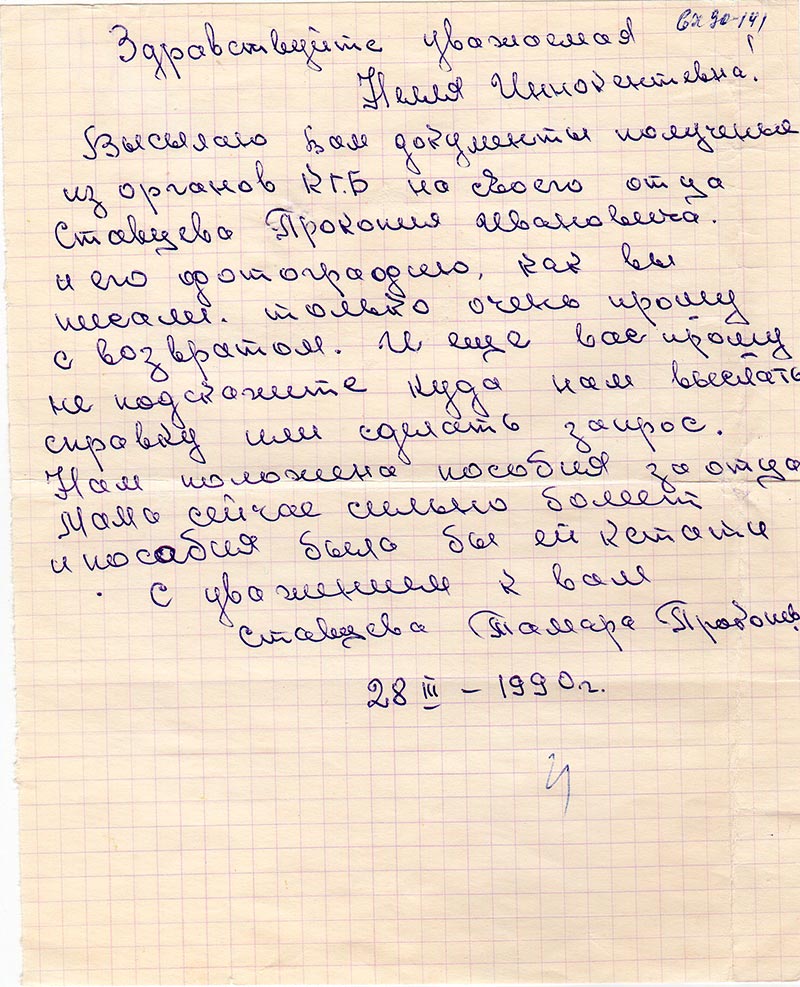 вх 90-141
Здравствуйте уважаемая
Нелля Иннокентевна!
Высылаю Вам документы полученые
из органов КГБ на своего отца
Ставцева Прокопия Ивановича.
и его фотографию, как вы
писали. только очень прошу
с возвратом. И еще вас прошу
не подскажите куда нам выслать
справку или сделать запрос.
Нам положена пособия за отца
Мама сейчас сильно болеет
и пособия была бы ей кстати
С уважением к вам
Ставцева Тамара Прокопьев
28 III – 1990 г.